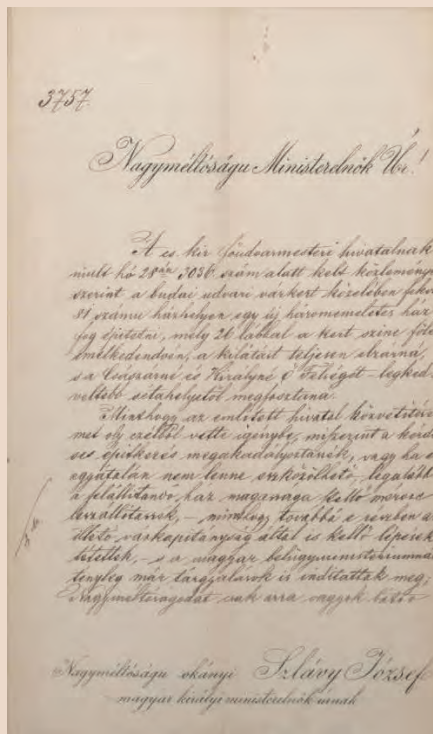 3757.
Nagyméltóságu Ministerelnök Úr!
A cs. kir. főudvarmesteri hivatalnak
mult hó 28án 3036. szám alatt kelt közleménye
szerint a budai udvari várkert közelében fekvő
81 számu házhelyen egy új háromemeletes ház
fog épitetni, mely 26 lábbal a kert szine fölé
emelkedendvén, a kilátást teljesen elzárná,
s a Császárné és Királyné Ő Felségét legked-
veltebb sétahelyétől megfosztaná.
Minthogy az emlitett hivatal közvetitése-
met oly czélból vette igénybe, miszerint a kérdé-
ses épitkezés megakadályoztassék, vagy ha ez
egyátalán nem lenne eszközölhető, legalább
a felállitandó ház magassága kellő mérvre
leszállittassék, – minthogy továbbá e részben az
illető várkapitányság által is kellő lépések
tétettek, – s a magyar belügyministeriummal
tényleg már tárgyalások is indittattak meg,
Nagyméltóságodat csak arra vagyok bátor
Nagyméltóságu okányi Szlávy József
magyar királyi ministerelnök úrnak